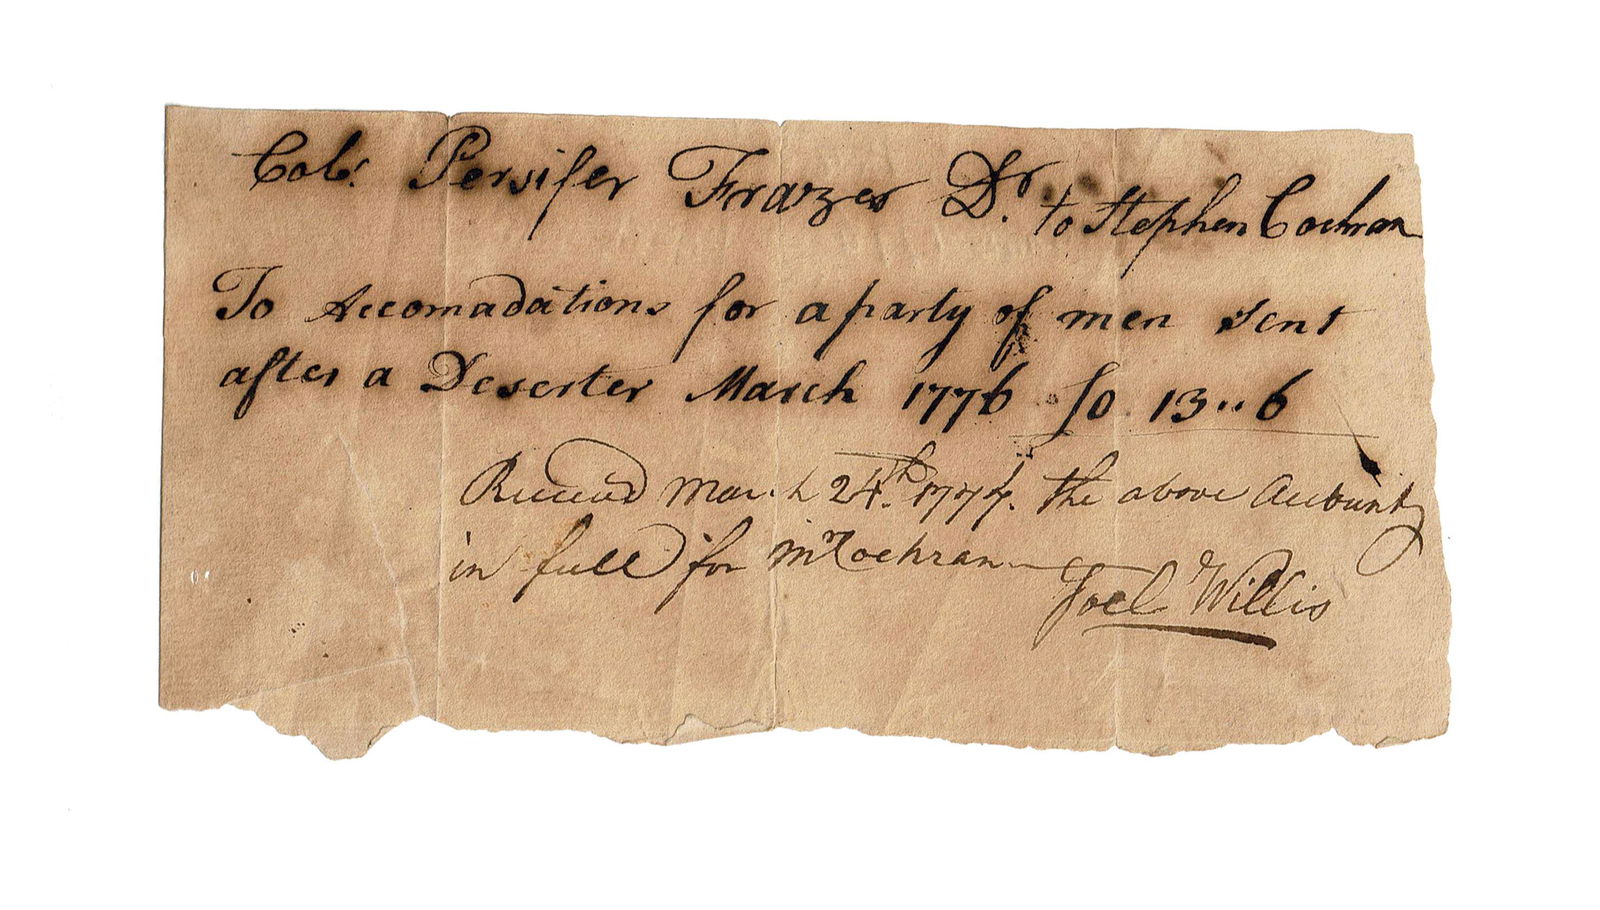 Colo. Persifer Frazer Dr. to Stephen Cochran
To Accomadations for a party of men sent
after a Deserter March 1776 £0 13 .. 6
Received March 24th. 1777. the above Account
in full for Mr Cochran
Joel Willis